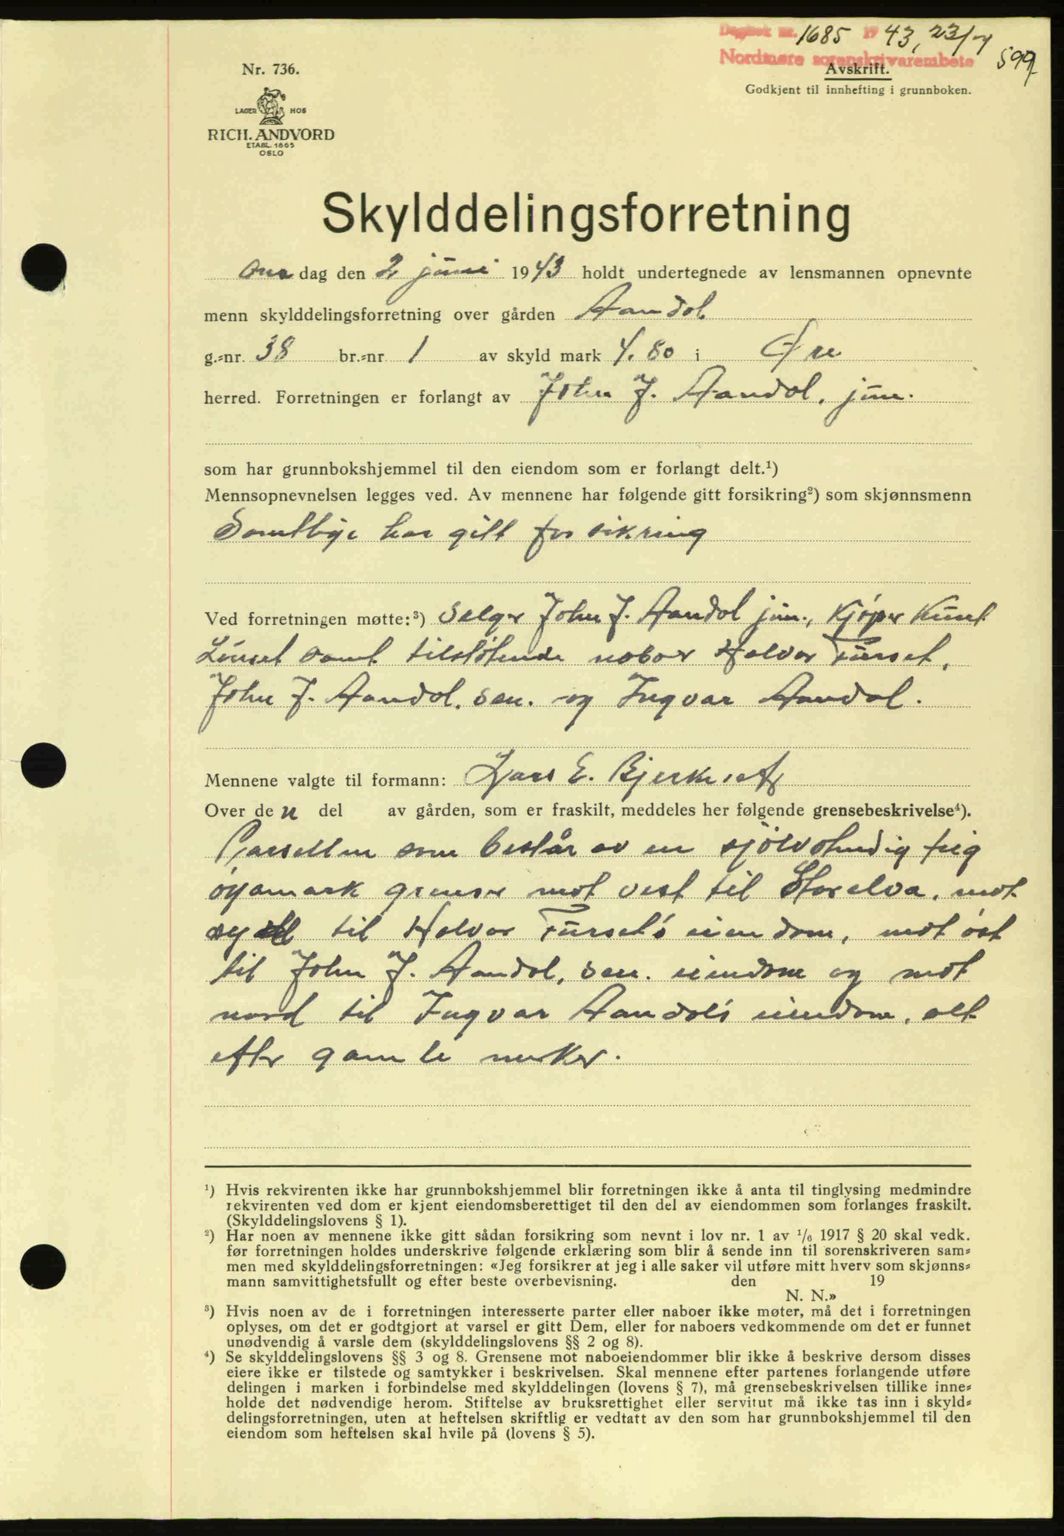 Dagbok nr. 1685 1943, 23/7
Nordmøre sorenskrivarembete
599
Nr. 736.
Avskrift.
Godkjent til innhefting i grunnboken.
LAGER HOS
RICH. ANDVORD
ETABL. 1865
OSLO
Skylddelingsforretning
Ons dag den 2 juni 1943 holdt undertegnede av lensmannen opnevnte
menn skylddelingsforretning over gården Aandol
g.=nr. 38 br.=nr 1 av skyld mark 4.80 i Øre
herred. Forretningen er forlangt av John J. Aandol, jun.
som har grunnbokshjemmel til den eiendom som er forlangt delt.¹)
Mennsopnevnelsen legges ved. Av mennene har følgende gitt forsikring²) som skjønnsmenn
Samtlige har gitt forsikring
Ved forretningen møtte:³) Selger John J. Aandol jun., Kjøper Knut
Lönset samt tilstøtende naboer Halvor Furset,
John J. Aandol, sen. og Ingvar Aandol.
Mennene valgte til formann: Lars E. Bjerkeset
Over den del av gården, som er fraskilt, meddeles her følgende grensebeskrivelse⁴).
Parsellen som består av en sjölvstendig teig
öyamark grenser mot vest til Storelva, mot
syd til Halvor Furset's eiendom, mot öst
til John J. Aandol, sen. eiendom og mot
nord til Ingvar Aandol's eiendom, alt
efter gamle merker.
¹) Hvis rekvirenten ikke har grunnbokshjemmel blir forretningen ikke å anta til tinglysing medmindre
rekvirenten ved dom er kjent eiendomsberettiget til den del av eiendommen som forlanges fraskilt.
(Skylddelingslovens § 1).
²) Har noen av mennene ikke gitt sådan forsikring som nevnt i lov nr. 1 av ¹/₆ 1917 § 20 skal vedk.
før forretningen holdes underskrive følgende erklæring som blir å sende inn til sorenskriveren sam=
men med skylddelingsforretningen: «Jeg forsikrer at jeg i alle saker vil utføre mitt hverv som skjønns=
mann samvittighetsfullt og efter beste overbevisning. den 19
N. N.»
³) Hvis noen av de i forretningen interesserte parter eller naboer ikke møter, må det i forretningen
oplyses, om det er godtgjort at varsel er gitt Dem, eller for naboers vedkommende om det er funnet
unødvendig å varsle dem (skylddelingslovens §§ 2 og 8).
⁴) Se skylddelingslovens §§ 3 og 8. Grensene mot naboeiendommer blir ikke å beskrive dersom disses
eiere ikke er tilstede og samtykker i beskrivelsen. Skal mennene efter partenes forlangende utføre
delingen i marken i forbindelse med skylddelingen (lovens § 7), må grensebeskrivelsen tillike inne=
holde det nødvendige herom. Stiftelse av bruksrettighet eller servitut må ikke tas inn i skyld=
delingsforretningen, uten at heftelsen skriftlig er vedtatt av den som har grunnbokshjemmel til den
eiendom som heftelsen skal hvile på (lovens § 5).